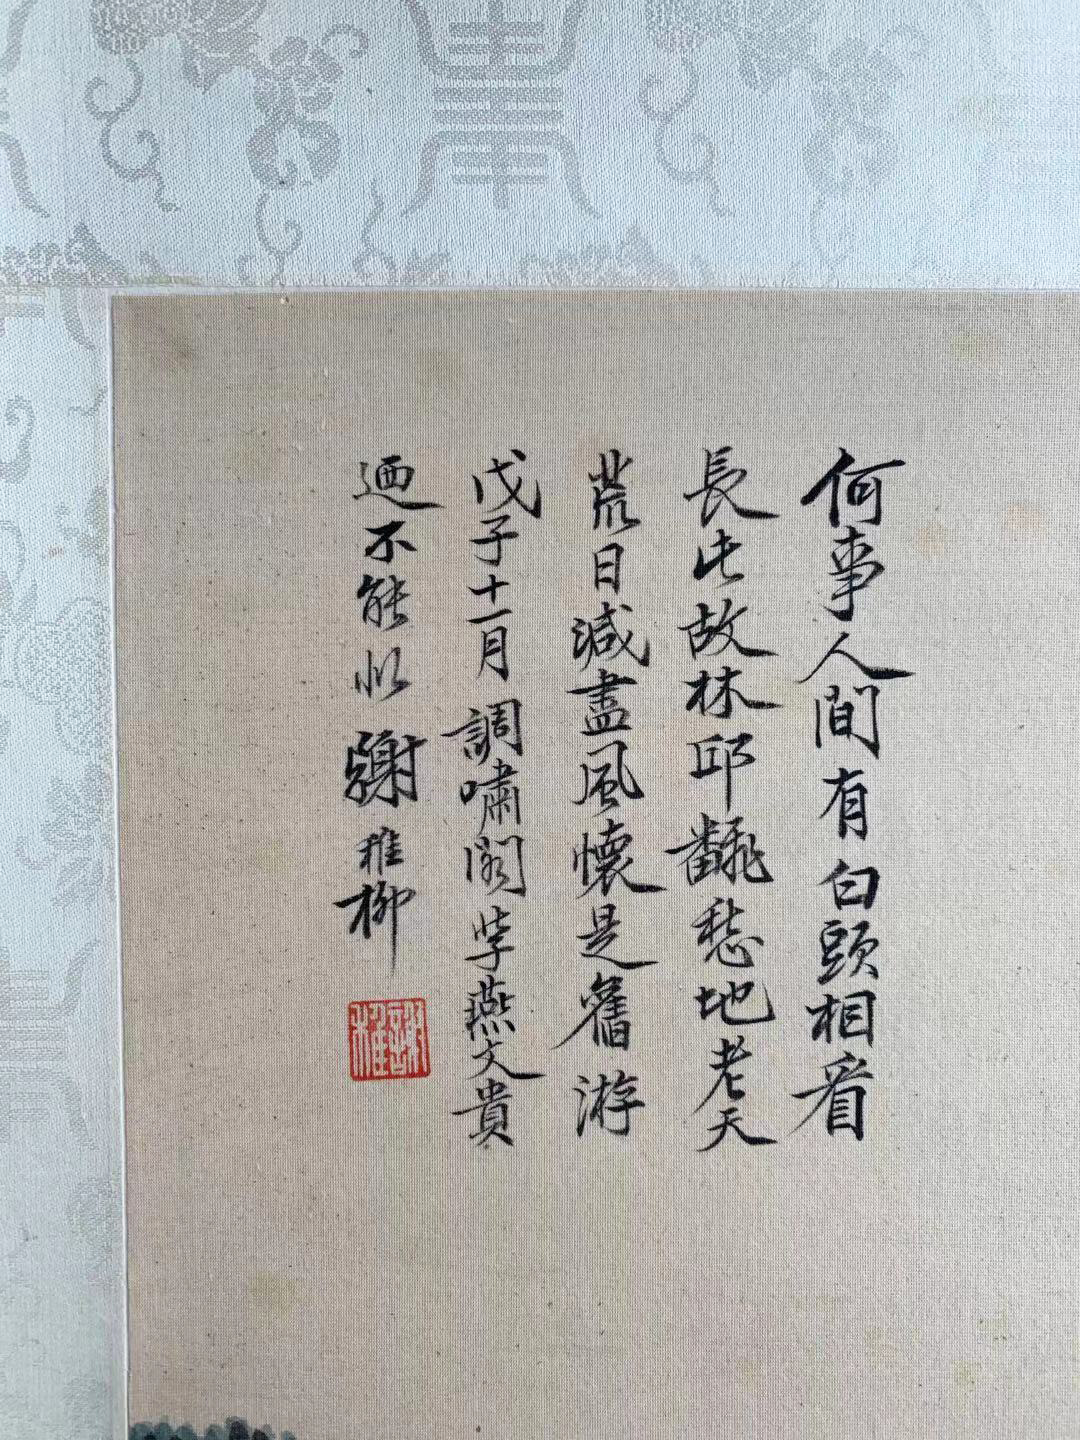 何事人間有白頭相看
長比故林邱翻愁地老天
荒日減盡風懷是舊游
戊子十一月調嘯閣學燕文貴
迺不能似謝稚柳
謝稚